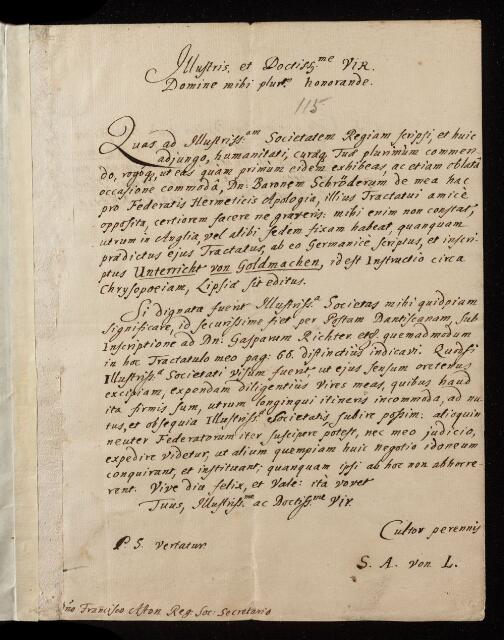 Illustris, et Doctiss:me VIR.
Domine mihi plurm. honorande.
115
Quas ad Illustriss:am Societatem Regiam scripsi, et huic
adjungo, humanitati, curæq; Tuæ plurimùm commen-
do, rogoq;, ut eas quam primùm eidem exhibeas, ac etiam oblatâ
occasione commodâ, Dn: Baronem Schröderum de mea hac
pro Federatis Hermeticis Apologia, illius Tractatui amicè
opposita, certiorem facere ne graveris: mihi enim non constat,
utrum in Anglia, vel alibi sedem fixam habeat, quanquam
prædictus ejus Tractatus, ab eo Germanicè scriptus, et inscri-
ptus Unterricht von Goldmachen, id est Instructio circa
Chrysopoeiam, Lipsiæ sit editus.
Si dignata fuerit Illustriss:a Societas mihi quidpiam
significare, id securissime fiet per Postam Dantiscanam, sub
Inscriptione ad Dn: Gasparum Richter etc. quemadmodum
in hoc Tractatulo meo pag: 66. distinctius indicavi. Quodsi
Illustriss:æ Societati visum fuerit, ut ejus sensum oretenus
excipiam, expendam diligentius vires meas, quibus haud
ita firmis sum, utrum longinqui itineris incommoda, ad nu-
tus, et obsequia Illustriss:æ Societatis subire possim: alioquin
neuter Federatorum iter suscipere potest, nec meo judicio,
expedire videtur, ut alium quempiam huic negotio idoneum
conquirant, et instituant; quanquam ipsi ab hoc non abhorre-
rent. Vive diu felix, et Vale: ità vovet
Tuus, Illustriss:me ac Doctiss:me Vir.
Cultor perennis
P. S. vertatur.
S. A. von L.
Dno Francisco Aston Reg: Soc: Secretario